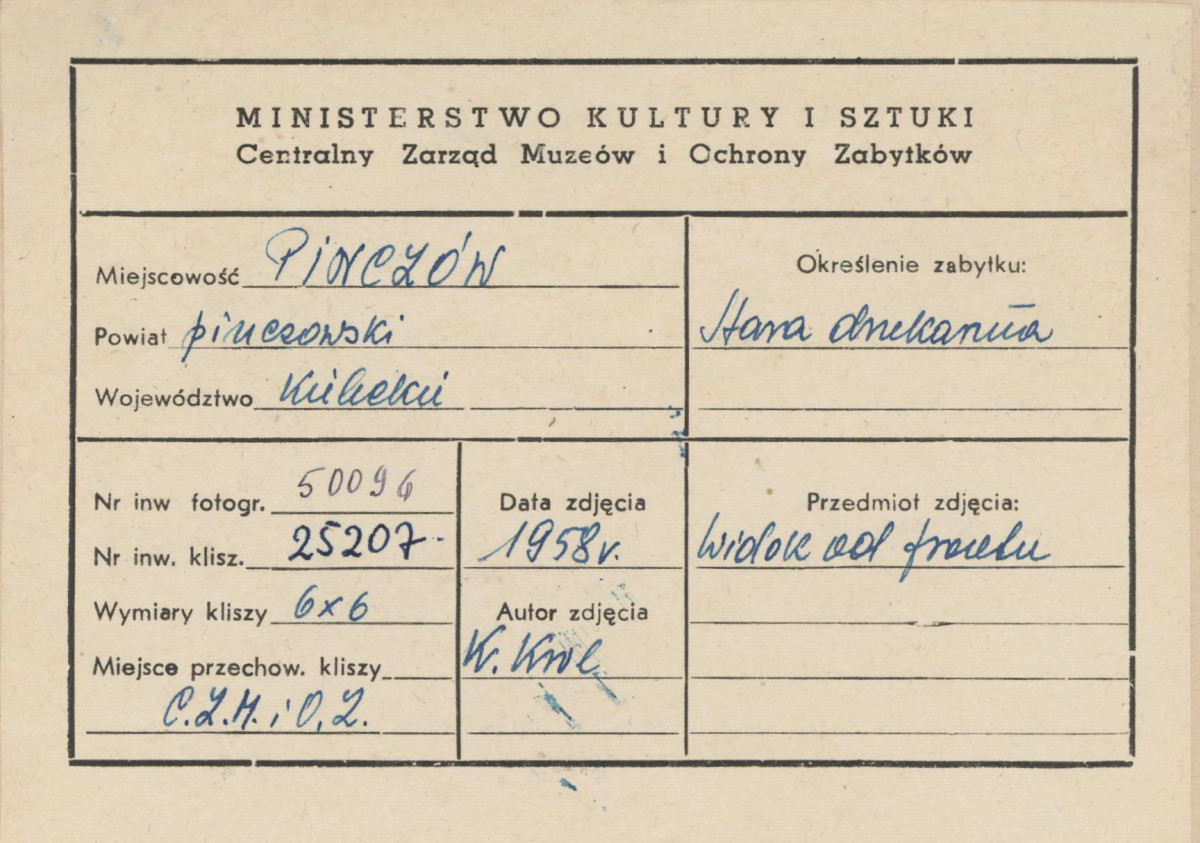 MINISTERSTWO KULTURY I SZTUKI
Centralny Zarząd Muzeów i Ochrony Zabytków
Miejscowość PINCZÓW
Powiat pinczowski
Województwo Kielecki
Określenie zabytku:
Stara drukarnia
Nr inw fotogr. 50096
Nr inw. klisz. 25207
Wymiary kliszy 6x6
Miejsce przechow. kliszy
C.Z.M. i O.Z.
Data zdjęcia
1958 r.
Autor zdjęcia
K. Krol
Przedmiot zdjęcia:
Widok od frontu